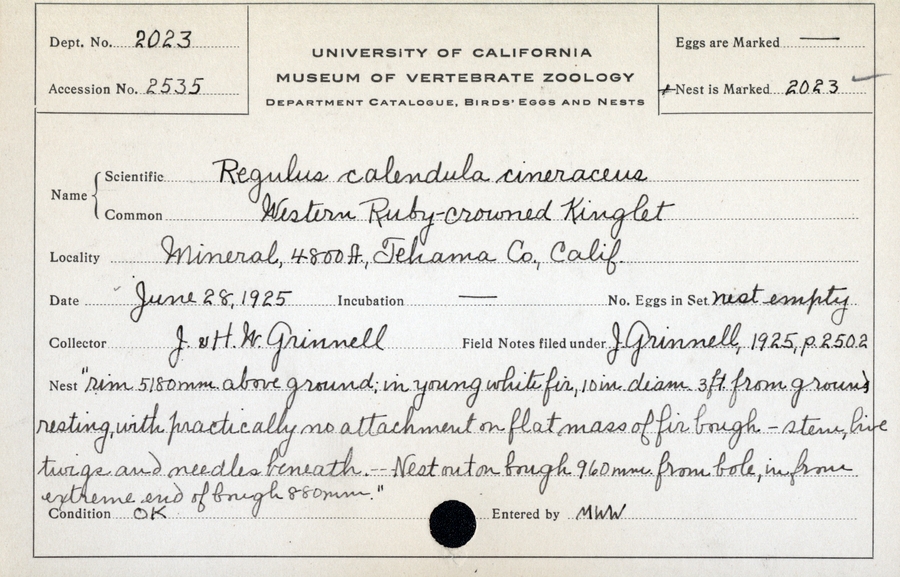 Dept. No. 2023
Accession No. 2535
UNIVERSITY OF CALIFORNIA
MUSEUM OF VERTEBRATE ZOOLOGY
DEPARTMENT CATALOGUE, BIRDS' EGGS AND NESTS
Eggs are Marked —
Nest is Marked 2023
Name
Scientific Regulus calendula cineraceus
Common Western Ruby-crowned Kinglet
Locality Mineral, 4800 ft., Tehama Co., Calif.
Date June 28, 1925 Incubation — No. Eggs in Set nest empty
Collector J. & H. W. Grinnell Field Notes filed under J Grinnell, 1925, p. 2502
Nest "rim 5180 mm. above ground; in young white fir, 10 in. diam. 3 ft. from ground
resting, with practically no attachment on flat mass of fir bough - stem, live
twigs and needles beneath. -- Nest out on bough 960 mm. from bole, in from
extreme end of bough 880 mm."
Condition OK Entered by MWW